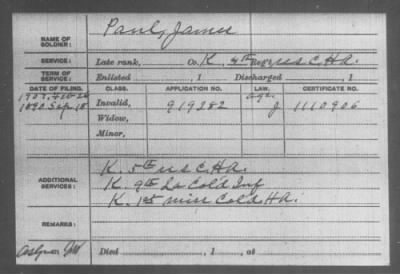 NAME OF SOLDIER: Paul, James
SERVICE: Late rank, Co. K, 4th Reg't U.S.C.H.A.
TERM OF SERVICE: Enlisted , 1 Discharged , 1
DATE OF FILING. CLASS. APPLICATION NO. LAW. CERTIFICATE NO.
1907, Feb 26 Age.
1890 Sep. 18 Invalid, 919282 J 1110906
Widow,
Minor,
K. 5th U.S.C.H.A.
ADDITIONAL SERVICES: K. 9th La Cold Inf
K. 1st Miss Cold H.A.
REMARKS:
Died , 1 , at